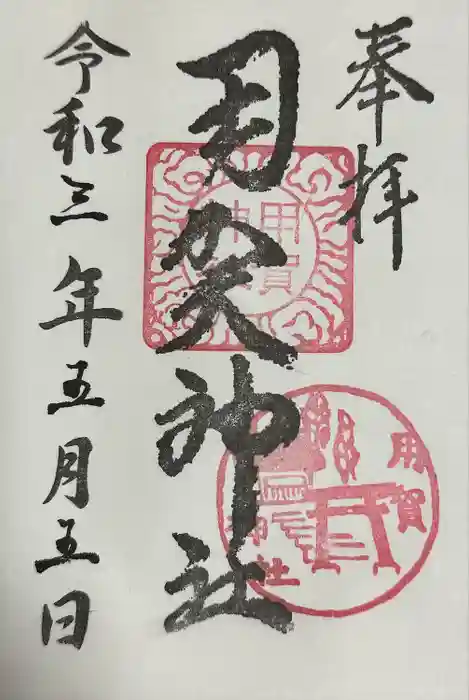 奉拝
用賀神社
用賀
神社
用賀
神社
令和三年五月五日